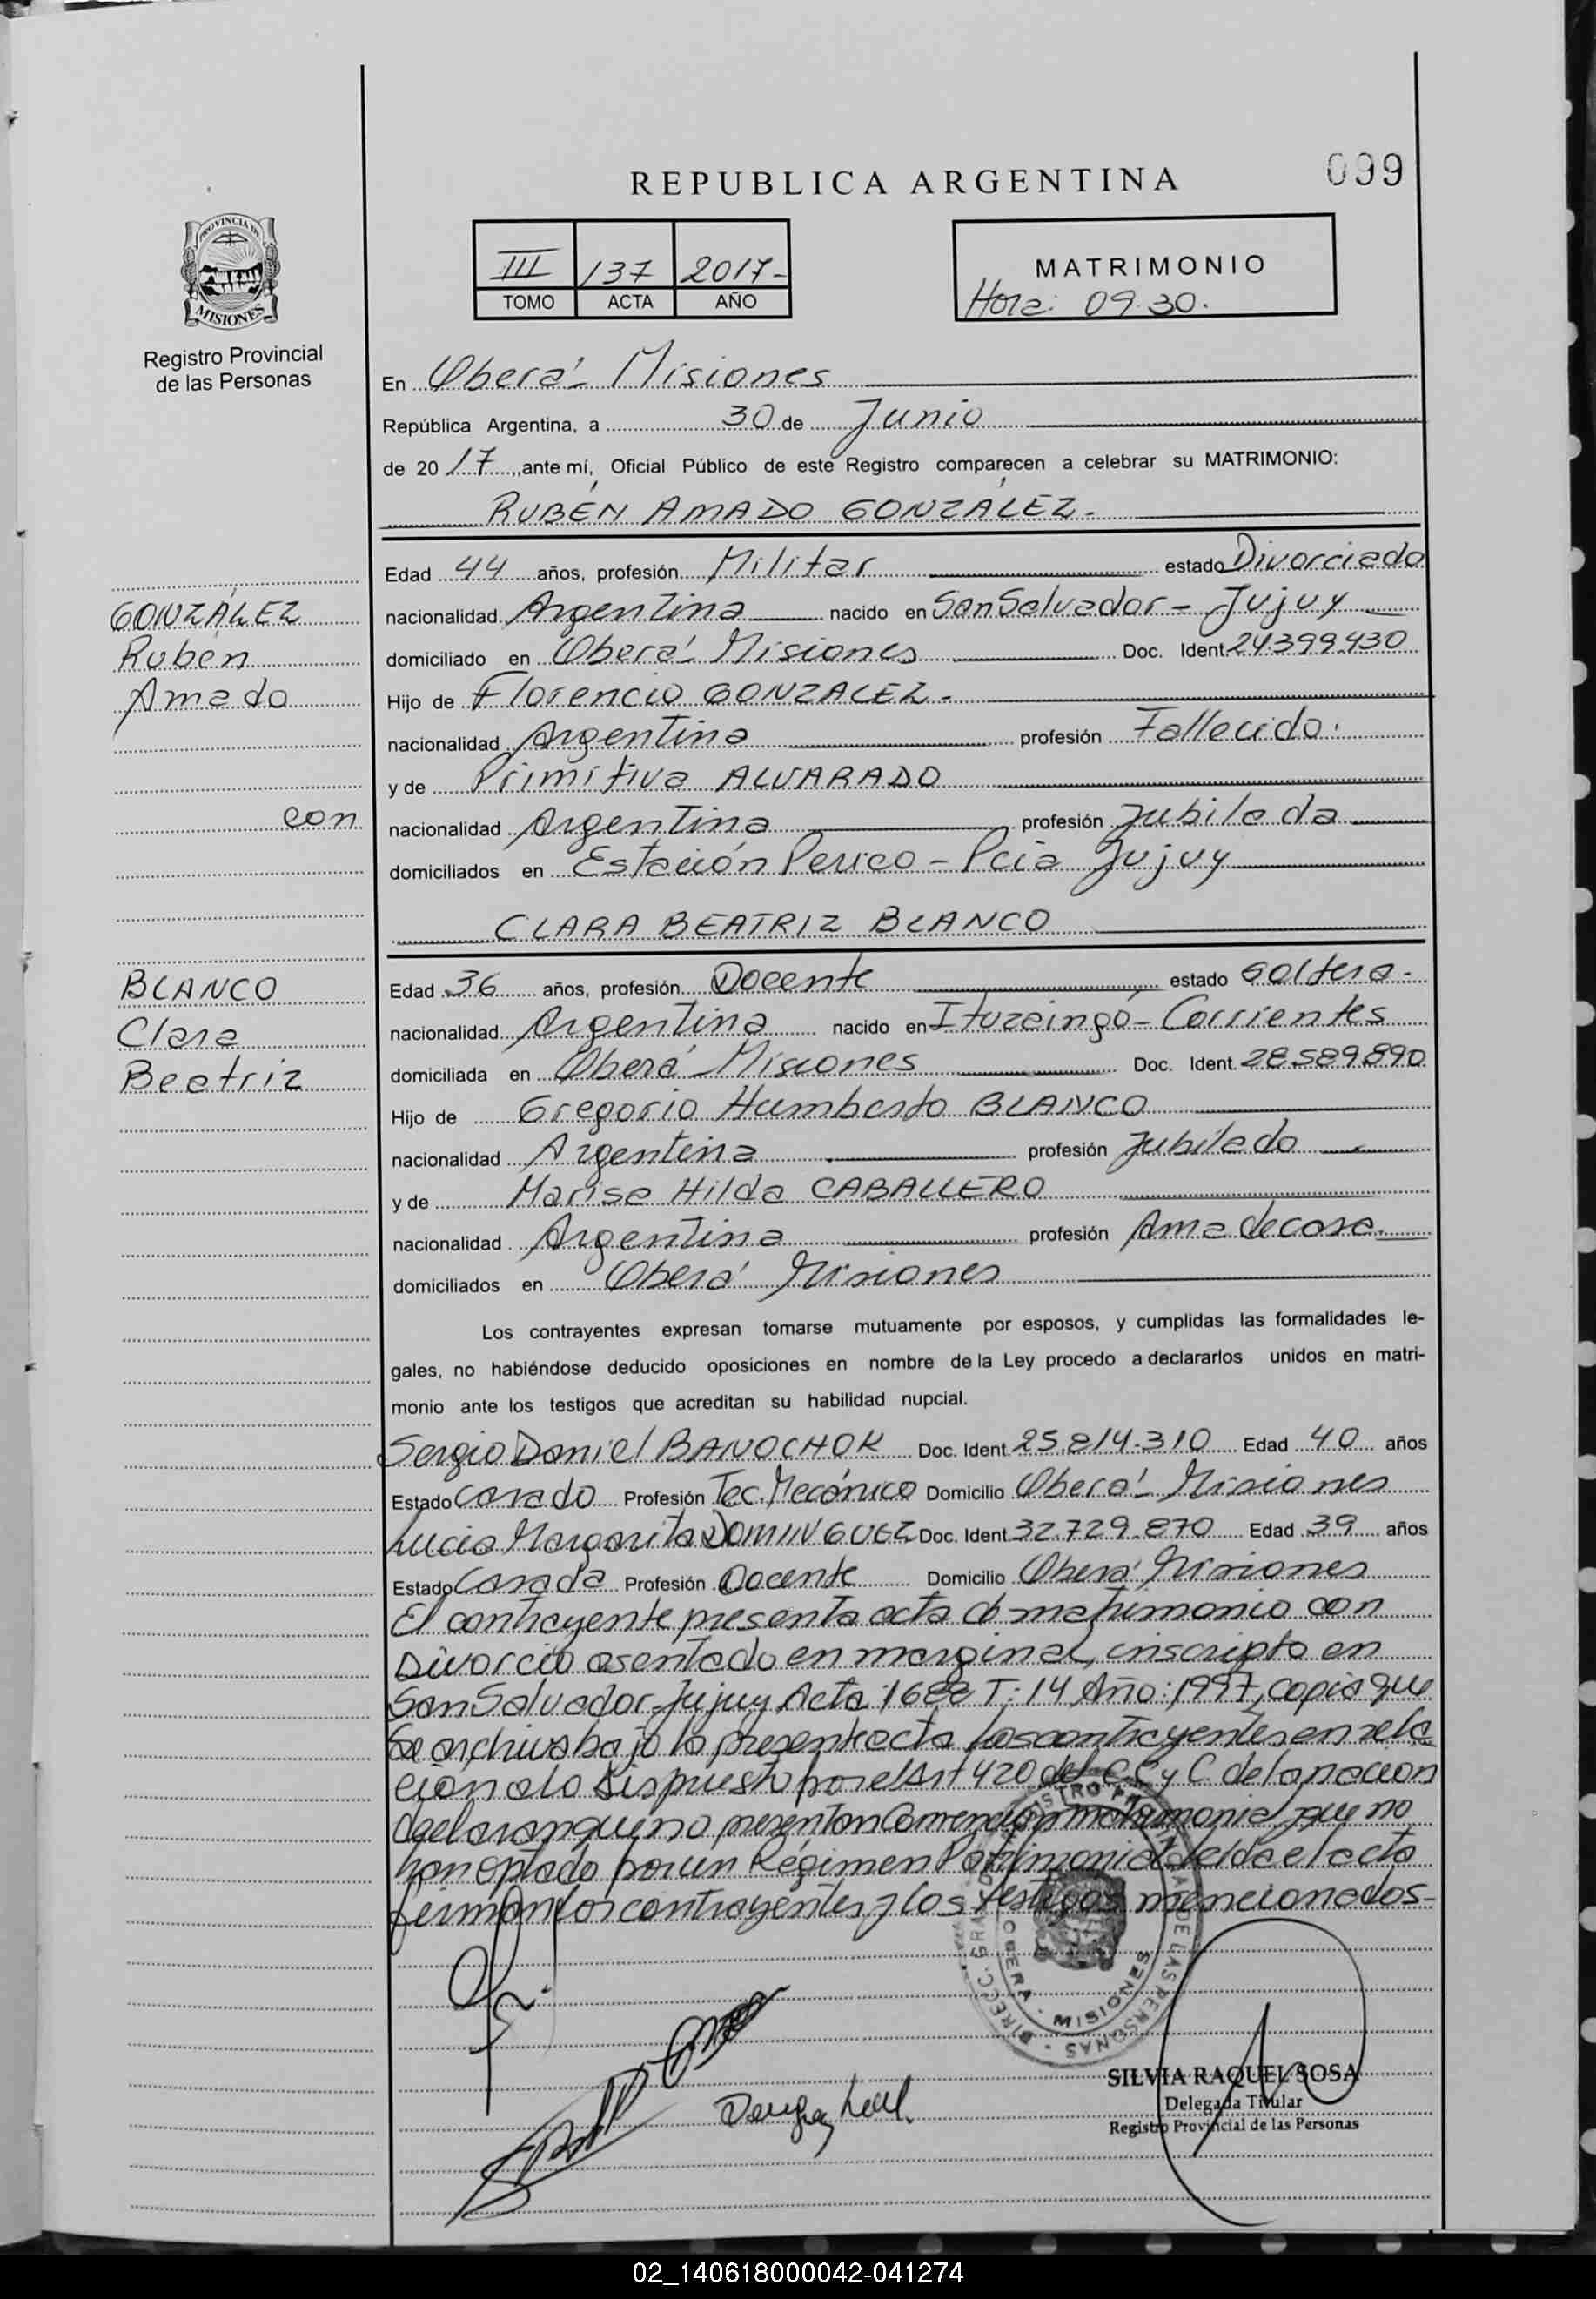 REPUBLICA ARGENTINA
099
PROVINCIA DE
MISIONES
Registro Provincial
de las Personas
III 137 2017-
TOMO ACTA AÑO
MATRIMONIO
Hora: 09.30.
En Oberá - Misiones
República Argentina, a 30 de Junio
de 2017, ante mí, Oficial Público de este Registro comparecen a celebrar su MATRIMONIO:
RUBÉN AMADO GONZÁLEZ.
Edad 44 años, profesión Militar estado Divorciado
GONZÁLEZ
nacionalidad Argentina nacido en San Salvador - Jujuy
Rubén
domiciliado en Oberá - Misiones Doc. Ident 24.399.430
Amado
Hijo de Florencio GONZALEZ.
nacionalidad Argentina profesión Fallecido.
y de Primitiva ALVARADO
con
nacionalidad Argentina profesión Jubilada
domiciliados en Estación Perico - Pcia Jujuy
CLARA BEATRIZ BLANCO
BLANCO
Edad 36 años, profesión Docente estado Soltera-
Clara
nacionalidad Argentina nacido en Ituzaingó - Corrientes
Beatriz
domiciliada en Oberá - Misiones Doc. Ident. 28.589.890
Hijo de Gregorio Humberto BLANCO
nacionalidad Argentina profesión Jubilado
y de Marisa Hilda CABALLERO
nacionalidad Argentina profesión Ama de casa.
domiciliados en Oberá Misiones
Los contrayentes expresan tomarse mutuamente por esposos, y cumplidas las formalidades le-
gales, no habiéndose deducido oposiciones en nombre de la Ley procedo a declararlos unidos en matri-
monio ante los testigos que acreditan su habilidad nupcial.
Sergio Daniel BANOCHOK Doc. Ident 25.814.310 Edad 40 años
Estado Casado Profesión Tec. Mecánico Domicilio Oberá - Misiones
Lucia Margarita DOMINGUEZ Doc. Ident 32.729.870 Edad 39 años
Estado Casada Profesión Docente Domicilio Oberá Misiones
El contrayente presenta acta de matrimonio con
Divorcio asentado en marginal, inscripto en
San Salvador - Jujuy Acta: 1688 T: 14 Año: 1997, copia que
Se archiva bajo la presente acta los contrayentes en rela
ción a lo dispuesto por el Art 420 del C.C y C. de la nación
declaran que no presentan Convención matrimonial, que no
han optado por un Régimen Patrimonial leída el acta
firman los contrayentes y los testigos mencionados-
DIRECC. GRAL. DEL REGISTRO PROVINCIAL DE LAS PERSONAS
OBERA - MISIONES
SILVIA RAQUEL SOSA
Delegada Titular
Registro Provincial de las Personas
02_140618000042-041274